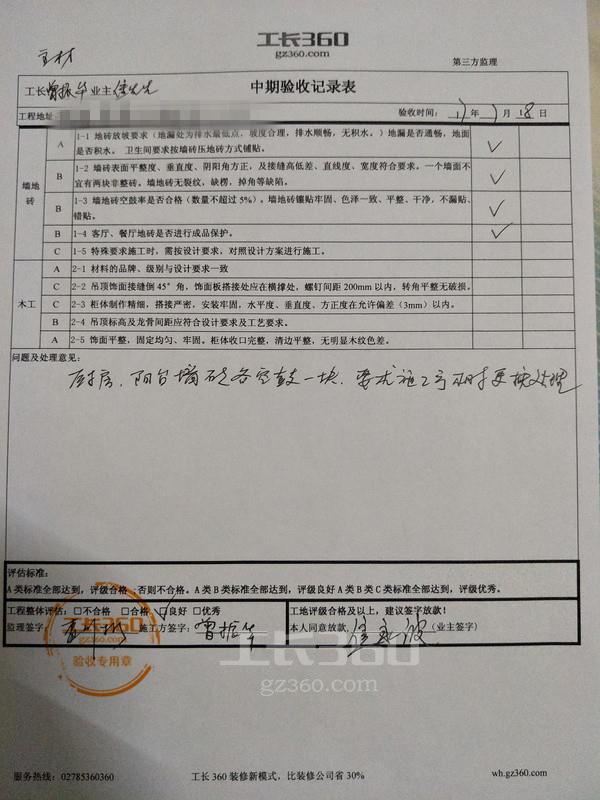 工长360
gz360.com
主材
第三方监理
工长 曾振华 业主
中期验收记录表
工程地址:
验收时间: 17年 月18日
墙地砖
A 1-1 地砖放坡要求(地漏处为排水最低点,坡度合理,排水顺畅,无积水。)地漏是否通畅,地面
是否积水。 卫生间要求按墙砖压地砖方式铺贴。 ✓
B 1-2 墙砖表面平整度、垂直度、阴阳角方正,及接缝高低差、直线度、宽度符合要求。一个墙面不
宜有两块非整砖。墙地砖无裂纹,缺楞,掉角等缺陷。 ✓
B 1-3 墙地砖空鼓率是否合格(数量不超过 5%)。墙地砖镶贴牢固、色泽一致、平整、干净,不漏贴、
错贴。 ✓
B 1-4 客厅、餐厅地砖是否进行成品保护。 ✓
C 1-5 特殊要求施工时,需按设计要求,对照设计方案进行施工。
木工
A 2-1 材料的品牌、级别与设计要求一致
C 2-2 吊顶饰面接缝倒 45°角,饰面板搭接处应在横撑处,螺钉间距 200mm 以内,转角平整无破损。
C 2-3 柜体制作精细,搭接严密,安装牢固,水平度、垂直度、方正度在允许偏差(3mm)以内。
B 2-4 吊顶标高及龙骨间距应符合设计要求及工艺要求。
A 2-5 饰面平整,固定均匀、牢固。柜体收口完整,清边平整,无明显木纹色差。
问题及处理意见:
厨房、阳台墙砖各空鼓一块,要求施工方及时更换处理
评估标准:
A 类标准全部达到,评级合格 否则不合格。A 类 B 类标准全部达到,评级良好 A 类 B 类 C 类标准全部达到,评级优秀。
工程整体评估:□不合格 □合格 ☑良好 □优秀
工地评级合格及以上,建议签字放款!
监理签字: 施工方签字: 曾振华
本人同意放款, (业主签字)
工长360
验收专用章
工长360
gz360.com
服务热线:02785360360
工长 360 装修新模式,比装修公司省 30%
wh.gz360.com